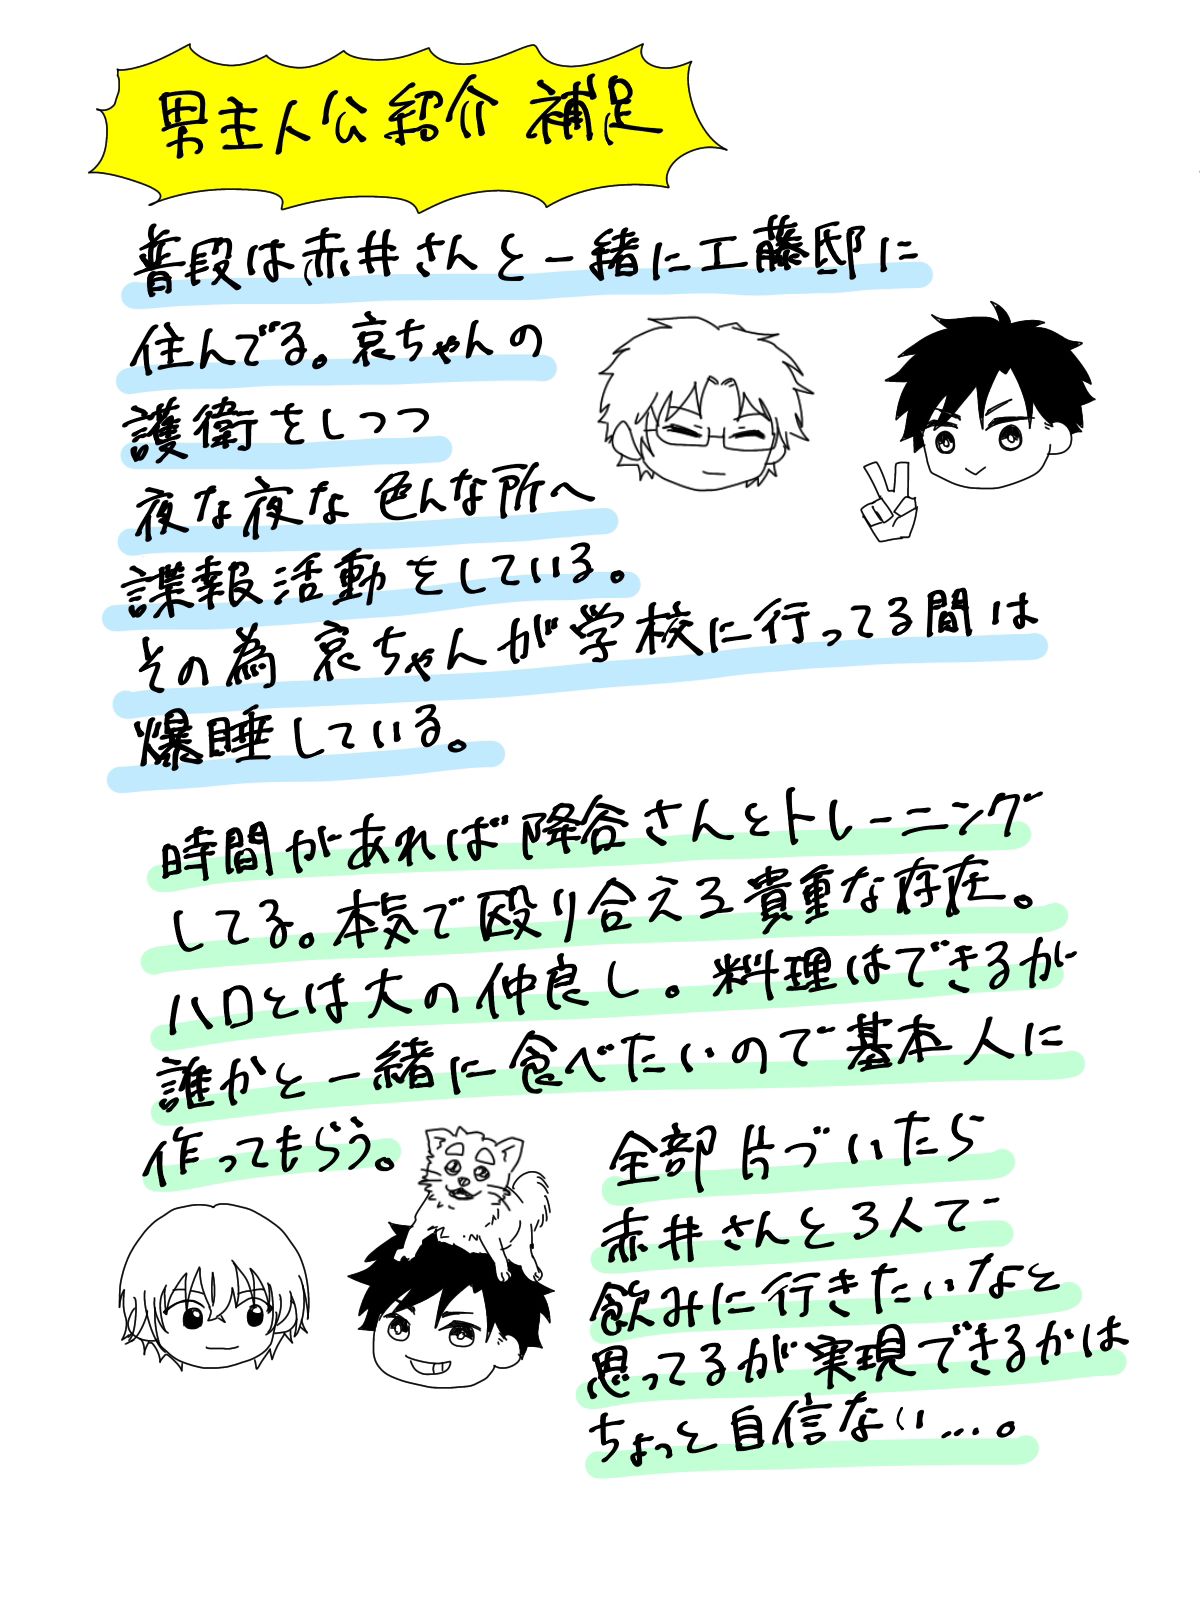 男主人公紹介 補足
普段は赤井さんと一緒に工藤邸に
住んでる。哀ちゃんの
護衛をしつつ
夜な夜な 色んな所へ
諜報活動をしている。
その為 哀ちゃんが学校に行ってる間は
爆睡している。
時間があれば降谷さんとトレーニング
してる。本気で殴り合える貴重な存在。
ハロとは大の仲良し。料理はできるが
誰かと一緒に食べたいので基本人に
作ってもらう。
全部片づいたら
赤井さんと3人で
飲みに行きたいなと
思ってるが実現できるかは
ちょっと自信ない…。